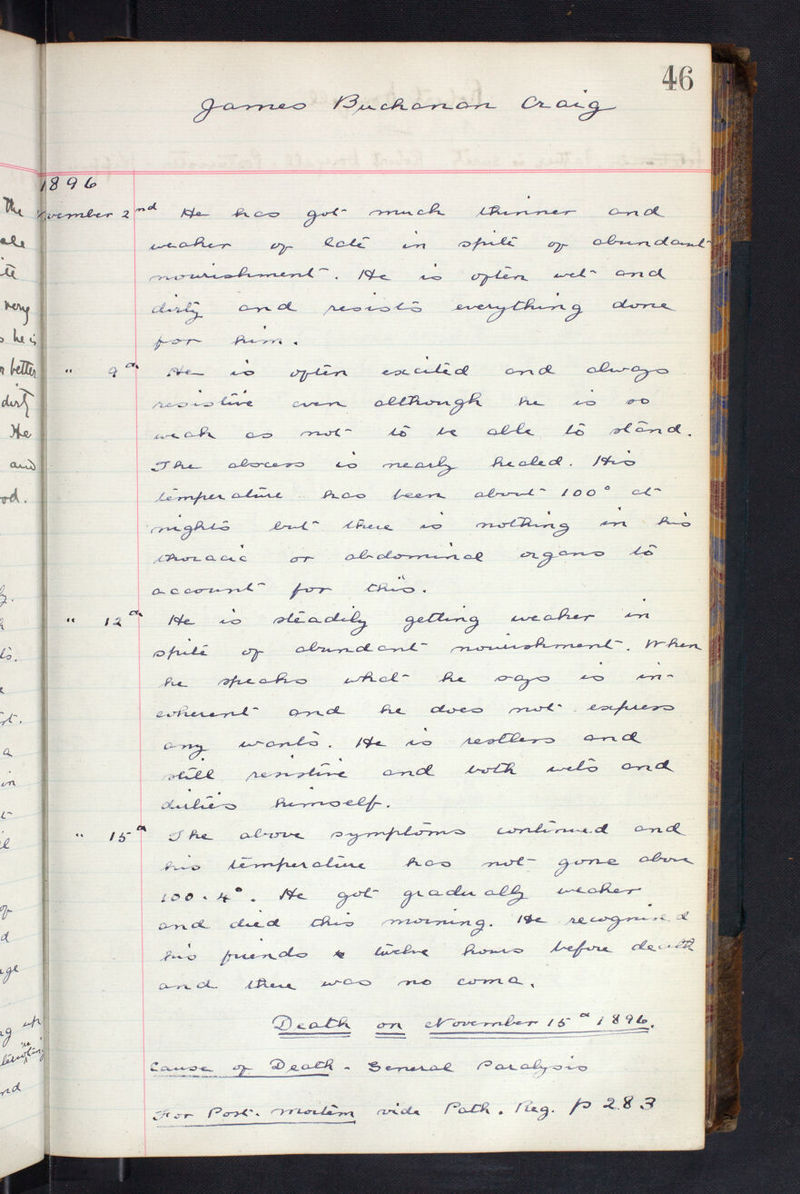 46
James Buchanan Craig
1896
November 2nd He has got much thinner and
weaker of late in spite of abundant
nourishment. He is often wet and
dirty and resists everything done
for him.
" 9th He is often excited and always
resistive even although he is so
weak as not to be able to stand.
The abscess is nearly healed. His
temperature has been about 100° at
nights but there is nothing in his
thoracic or abdominal organs to
account for this.
" 12th He is steadily getting weaker in
spite of abundant nourishment. When
he speaks what he says is in-
coherent and he does not express
any wants. He is restless and
still resistive and both wets and
dirties himself.
" 15th The above symptoms continued and
his temperature has not gone above
100.4°. He got gradually weaker
and died this morning. He recognised
his friends twelve hours before death
and there was no coma.
Death on November 15th 1896.
Cause of Death - General Paralysis
For Post-mortem vide Path. Reg. p 283